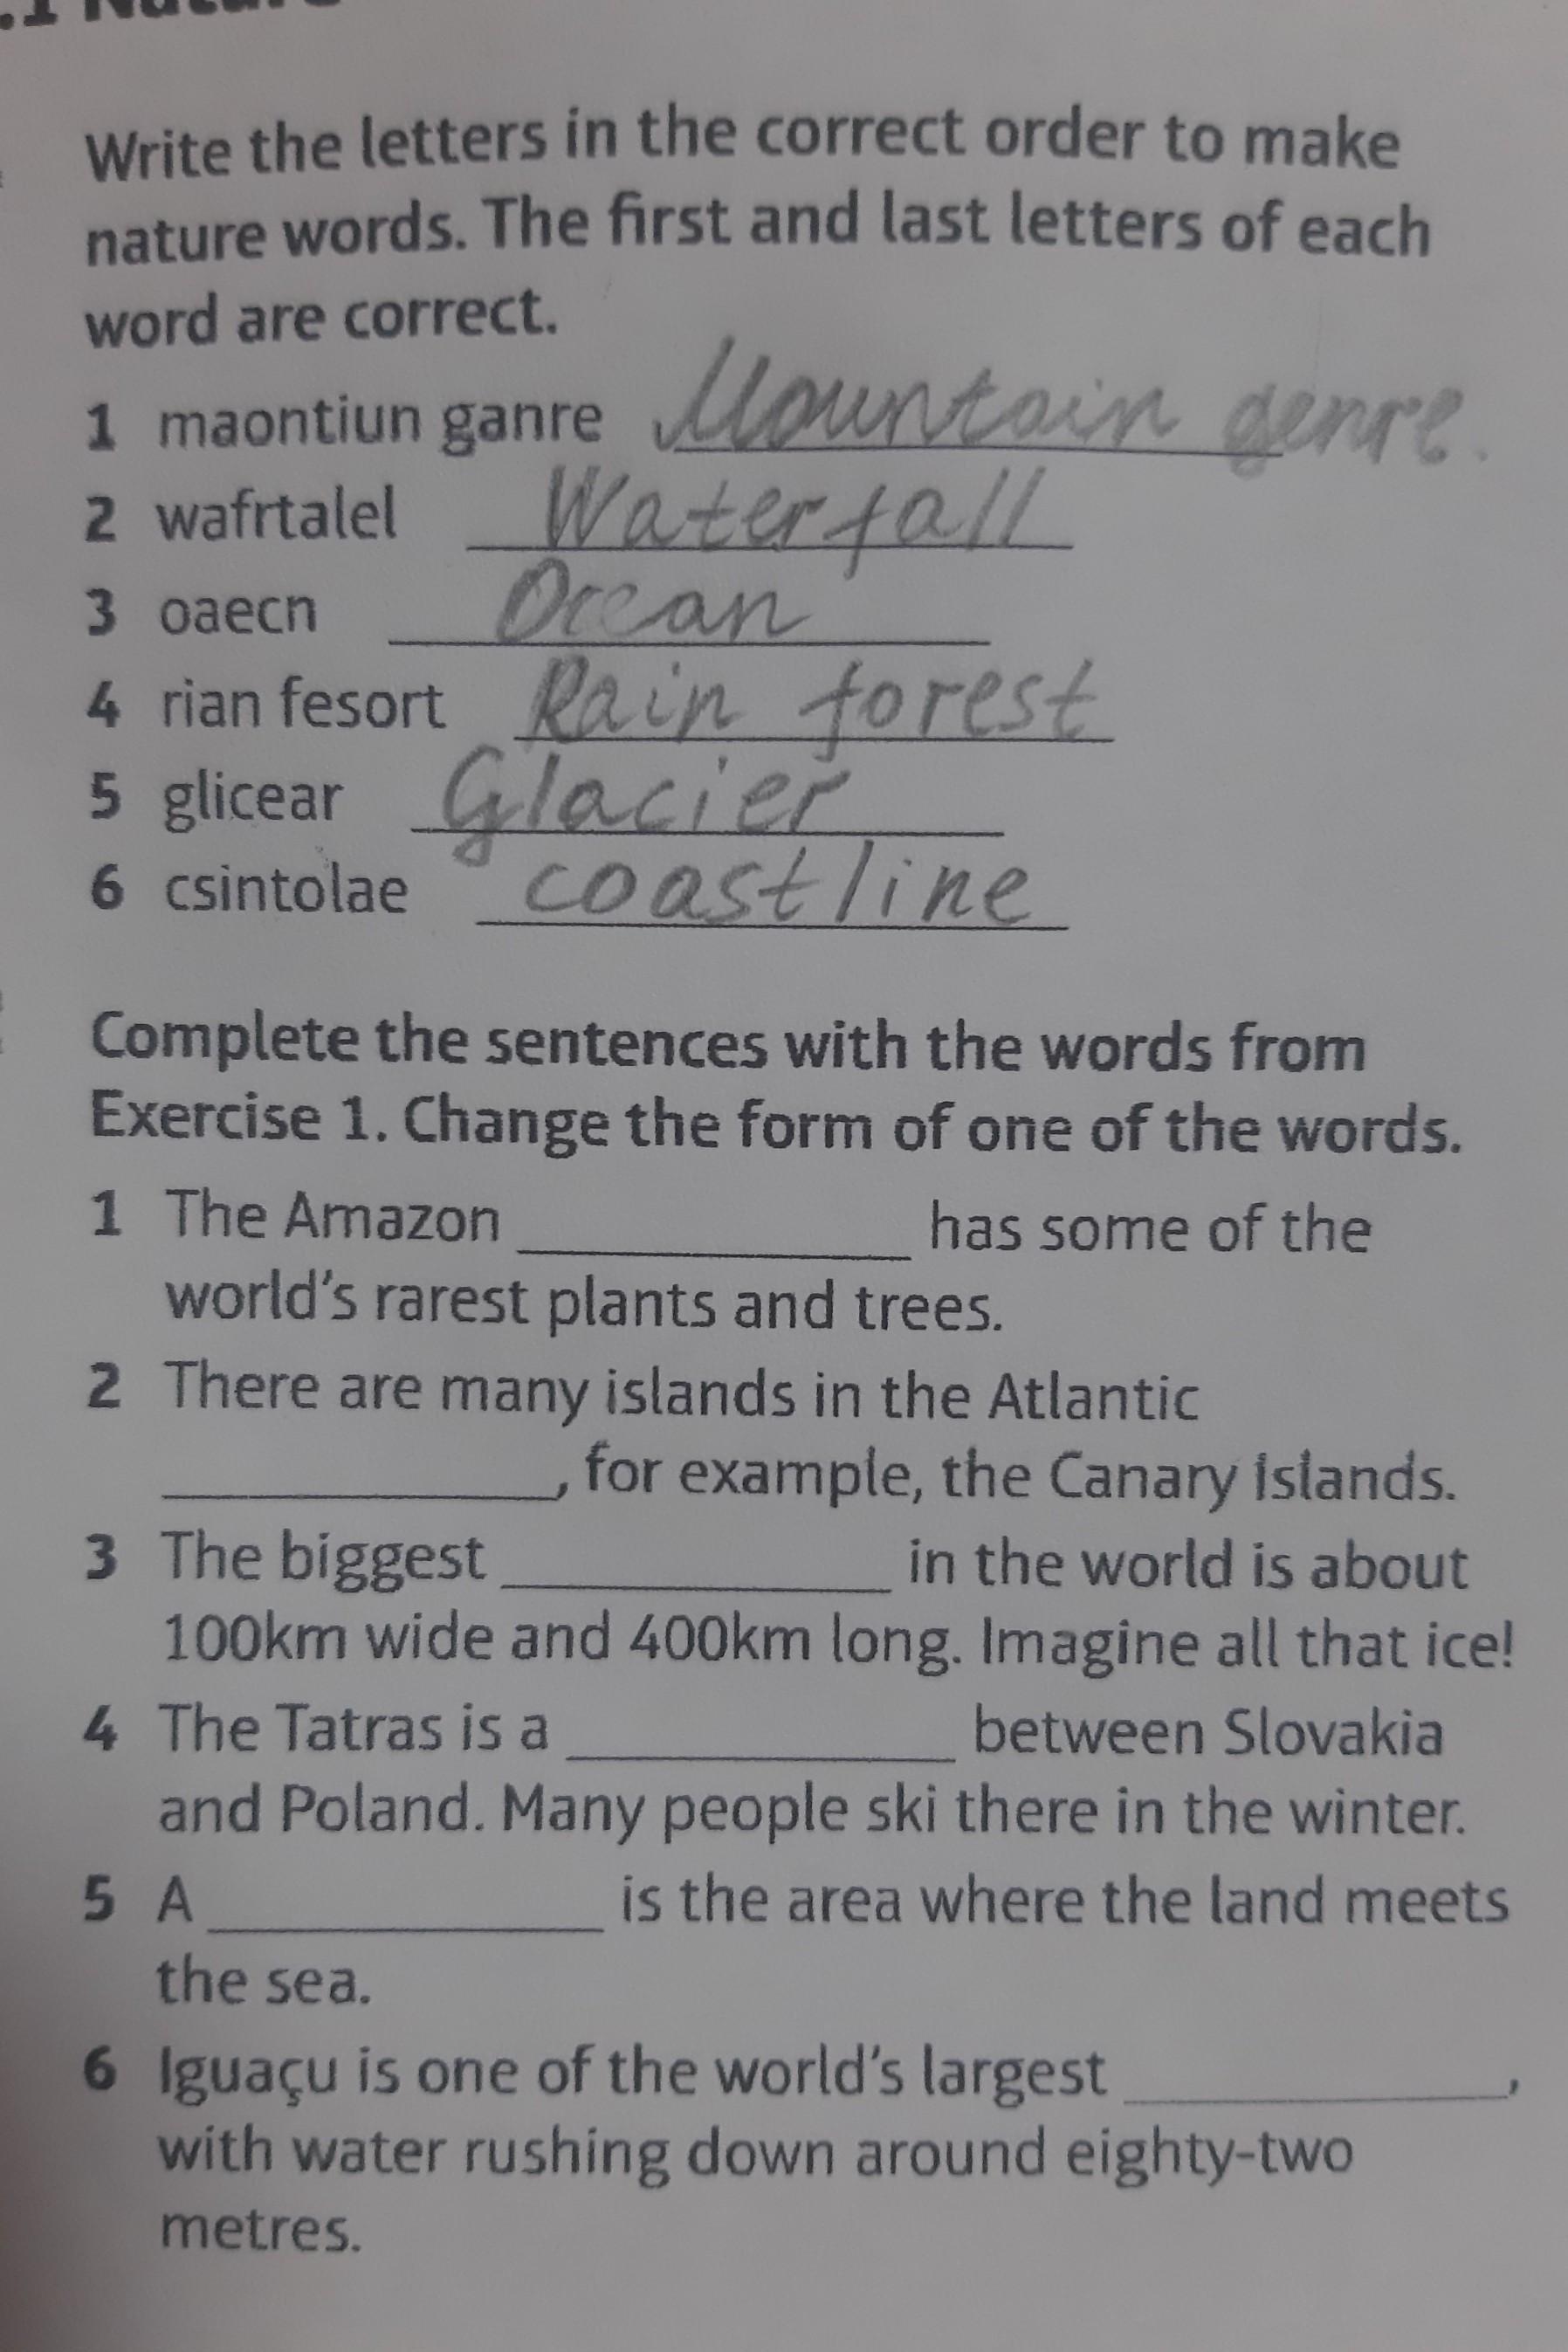 .1 Nature
Write the letters in the correct order to make
nature words. The first and last letters of each
word are correct.
1 maontiun ganre Mountain genre.
2 wafrtalel Waterfall
3 oaecn Ocean
4 rian fesort Rain forest
5 glicear Glacier
6 csintolae coastline
Complete the sentences with the words from
Exercise 1. Change the form of one of the words.
1 The Amazon ____________ has some of the
world's rarest plants and trees.
2 There are many islands in the Atlantic
____________, for example, the Canary Islands.
3 The biggest ____________ in the world is about
100km wide and 400km long. Imagine all that ice!
4 The Tatras is a ____________ between Slovakia
and Poland. Many people ski there in the winter.
5 A ____________ is the area where the land meets
the sea.
6 Iguaçu is one of the world's largest ____________,
with water rushing down around eighty-two
metres.